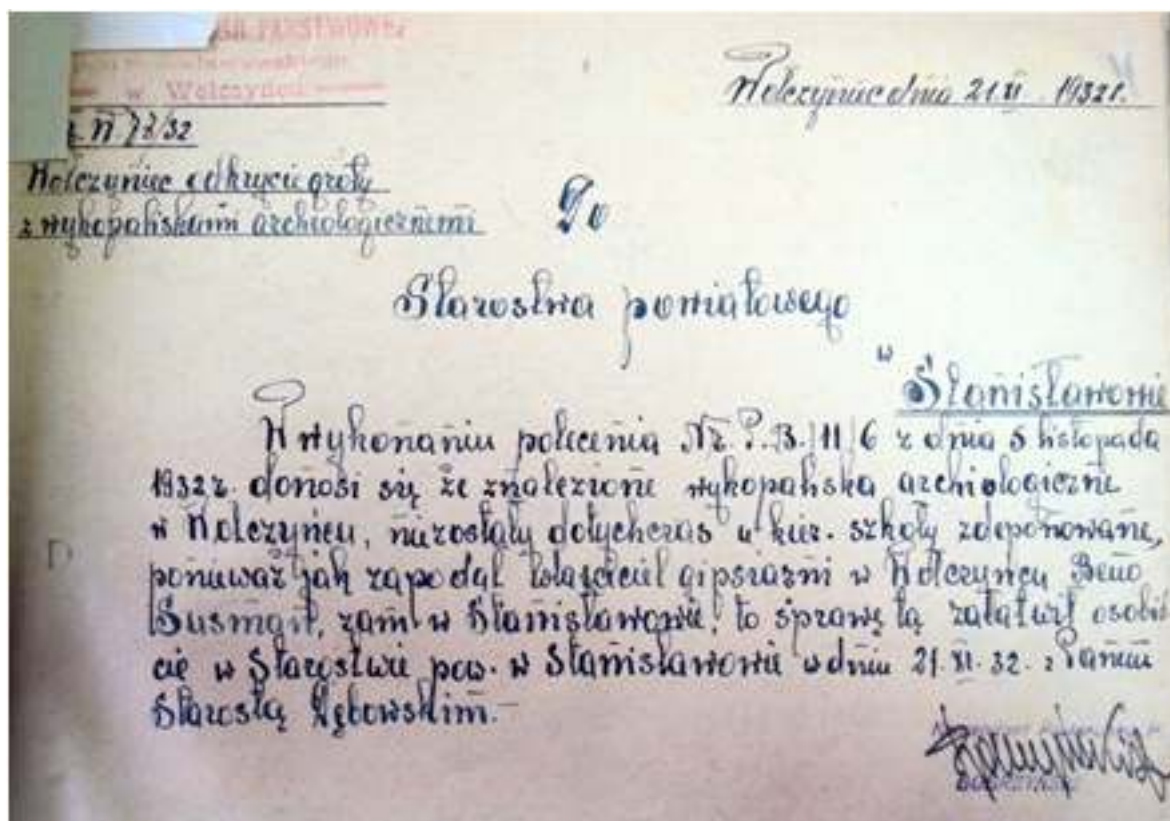 w Wołczyńcu
Wołczyniec dnia 21.XI. 1932 r.
/32
Wołczyniec odkrycie groty
z wykopaliskami archiologicznemi
Do
Starostwa powiatowego
w Stanisławowie
W wykonaniu polecenia Nr. P.B./11/6 z dnia 5 listopada
1932 r. donosi się że znalezione wykopaliska archiologiczne
w Wołczyńcu, niezostały dotychczas u kier. szkoły zdeponowane,
ponieważ jak zapodał właściciel gipsiarni w Wołczyńcu Beno
zam. w Stanisławowie, to sprawę tą załatwił osobiś
cie w Starostwie pow. w Stanisławowie w dniu 21.XI.32. z Panem
Starostą